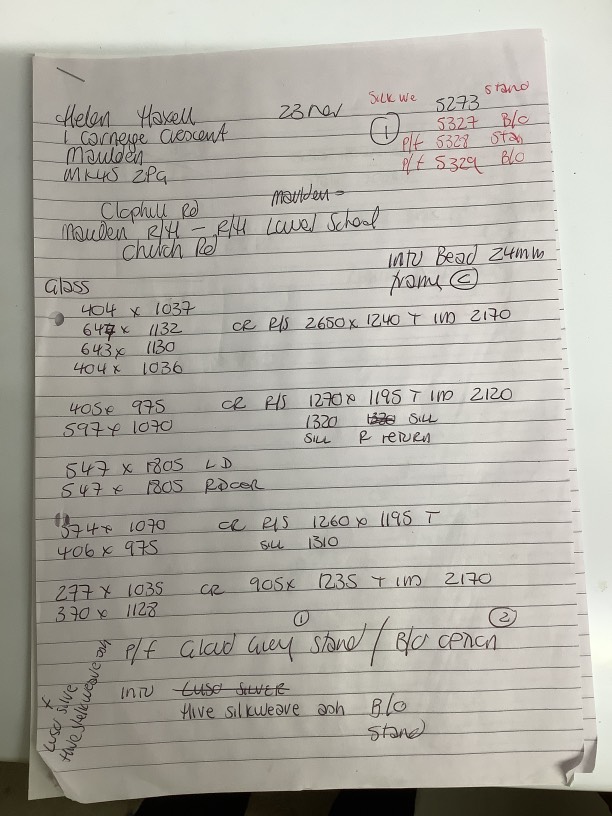 Helen Haxell 23 Nov Silkwe 5273 Stand
1 Carnegie Crescent ① 5327 B/O
Maulden P/f 5328 Stan
MK45 2PG P/f 5329 B/O
Maulden
Clophill Rd
Maulden R/H - R/H Lower School
Church Rd
Into Bead 24mm
frame Ⓒ
Glass
404 x 1037
647 x 1132 CR R/S 2650 x 1240 T IID 2170
643 x 1130
404 x 1036
405 x 975 CR R/S 1270 x 1195 T IID 2120
597 x 1070 1320 Sill
Sill R return
547 x 1805 LD
547 x 1805 RDOOR
374 x 1070 CR R/S 1260 x 1195 T
406 x 975 Sill 1310
277 x 1035 CR 905 x 1235 T IID 2170
370 x 1128
① ②
P/f Stand / B/O
Into Luso Silver
Hive silkweave ash B/O
Stand
x
Luso Silve
Hive silkweave ash